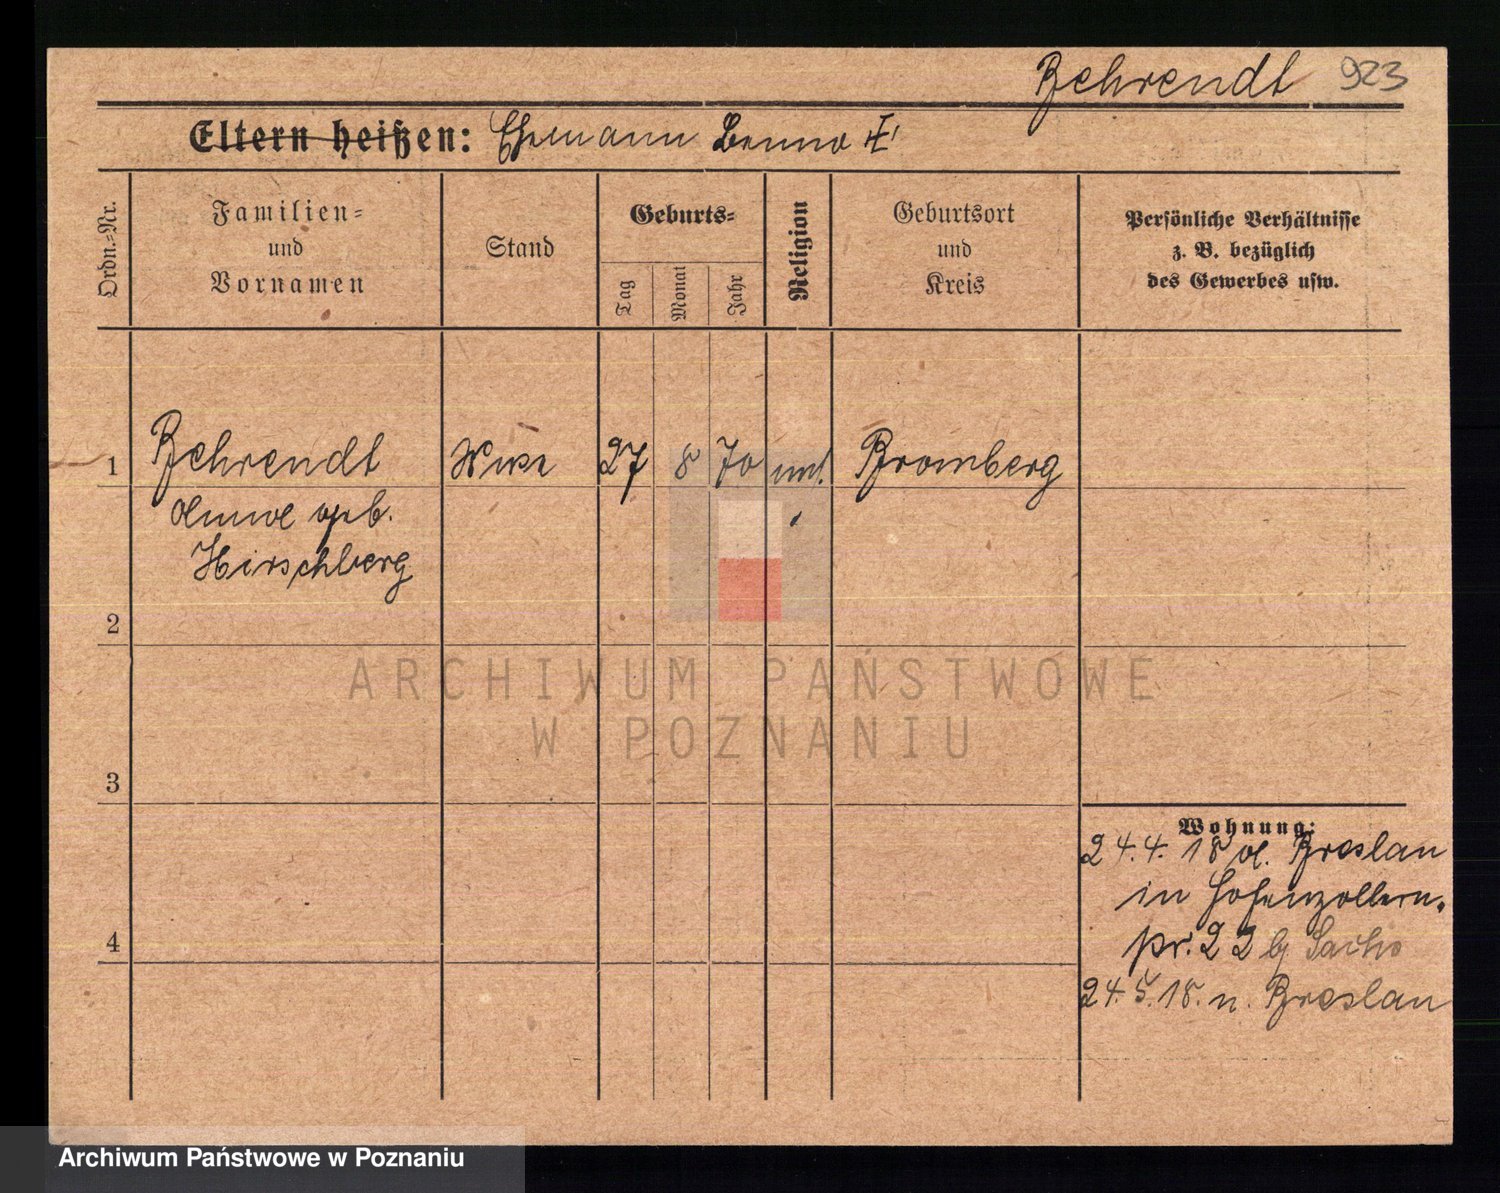 Behrendt 923
Eltern heißen: Ehemann Benno
Ordn.=Nr.
Familien=
und
Vornamen
Stand
Geburts=
Tag
Monat
Jahr
Religion
Geburtsort
und
Kreis
Persönliche Verhältnisse
z. B. bezüglich
des Gewerbes usw.
1 Behrendt 27 8 70 Bromberg
geb.
Hirschberg
2
3
4
Wohnung:
24.4.18 v. Breslau
in Hohenzollern-
str. 22 bj Sachs
24.5.18. n. Breslau
ARCHIWUM PAŃSTWOWE
W POZNANIU
Archiwum Państwowe w Poznaniu